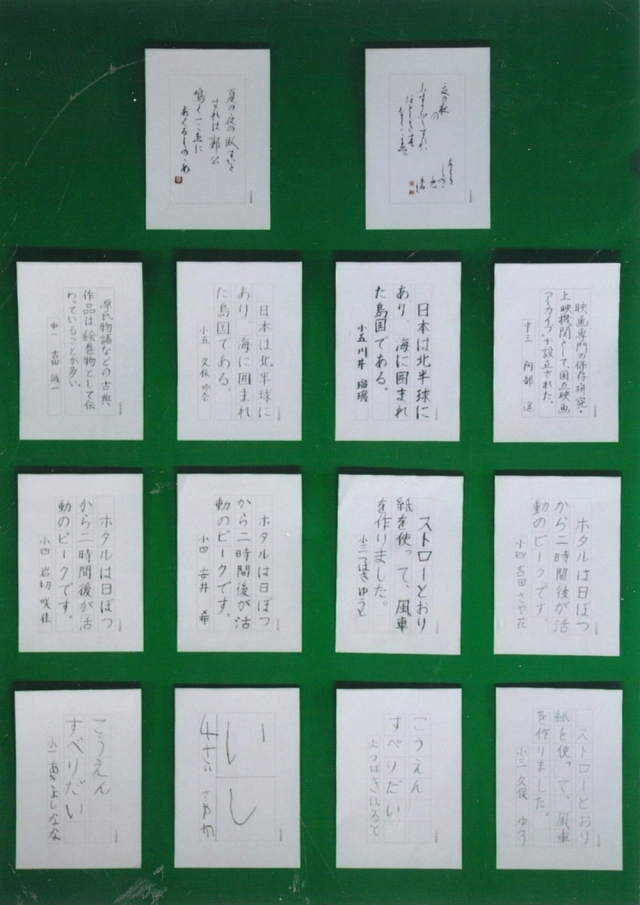 夏の夜の臥すかと
すれば郭公
鳴く一こゑに
あくるしののめ
映画専門の保存研究・
上映機関として、国立映画
アーカイブが設立された。
中三 阿部
日本は北半球に
あり、海に囲まれ
た島国である。
小五 川井 瑠璃
日本は北半球に
あり、海に囲まれ
た島国である。
小五 久保 玲奈
源氏物語などの古典
作品は絵巻物として伝
わっていることが多い。
中一 吉田 誠一
ホタルは日ぼつ
から二時間後が活
動のピークです。
小四 古田 さや花
ストローとおり
紙を使って、風車
を作りました。
小三 つばきゆうと
ホタルは日ぼつ
から二時間後が活
動のピークです。
小四 安井 希
ホタルは日ぼつ
から二時間後が活
動のピークです。
小四 岩切 咲佳
ストローとおり
紙を使って、風車
を作りました。
小三 久保 ゆう
こうえん
すべりだい
小一 つばきはると
いし
4さい さわか
こうえん
すべりだい
小一 あきよし なな